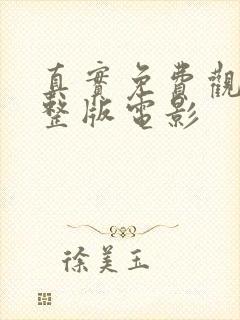 真實免費觀
整版電影
徐美玉